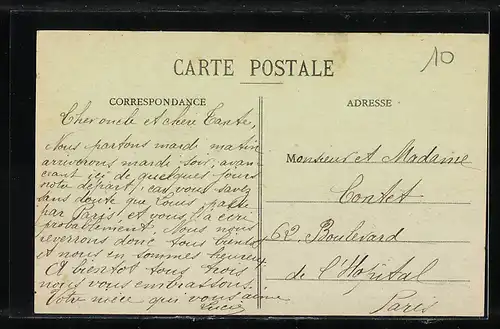 10
CARTE POSTALE
CORRESPONDANCE
ADRESSE
Cher oncle et chère Tante,
Nous partons mardi matin
arriverons mardi soir, avan-
cant ici de quelques jours
notre départ, car vous savez
sans doute que Louis, passe
par Paris et vous a écrit
probablement. Nous nous
reverrons donc tous bientôt
et nous en sommes heureux
A bientôt tous trois
nous vous embrassons.
Votre nièce qui vous aime
Lucie
Monsieur et Madame
Contet
62 Boulevard
de l'Hôpital
Paris